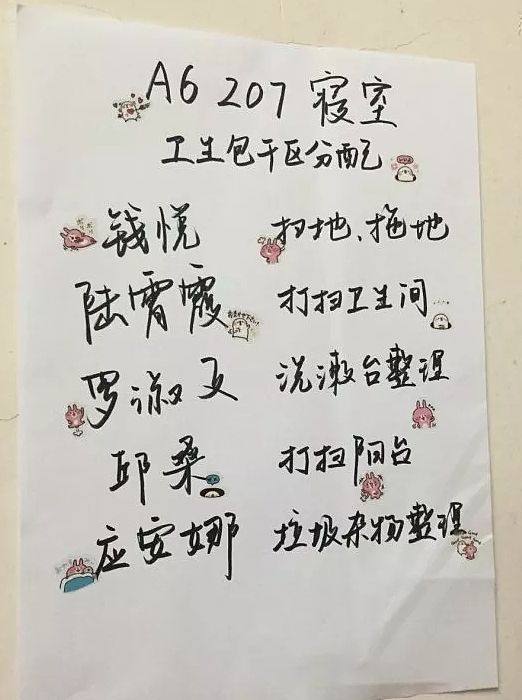 A6 207 寝室
卫生包干区分配
钱悦 扫地、拖地
陆霄霞 打扫卫生间
罗淑文 洗漱台整理
邱桑 打扫阳台
应安娜 垃圾杂物整理